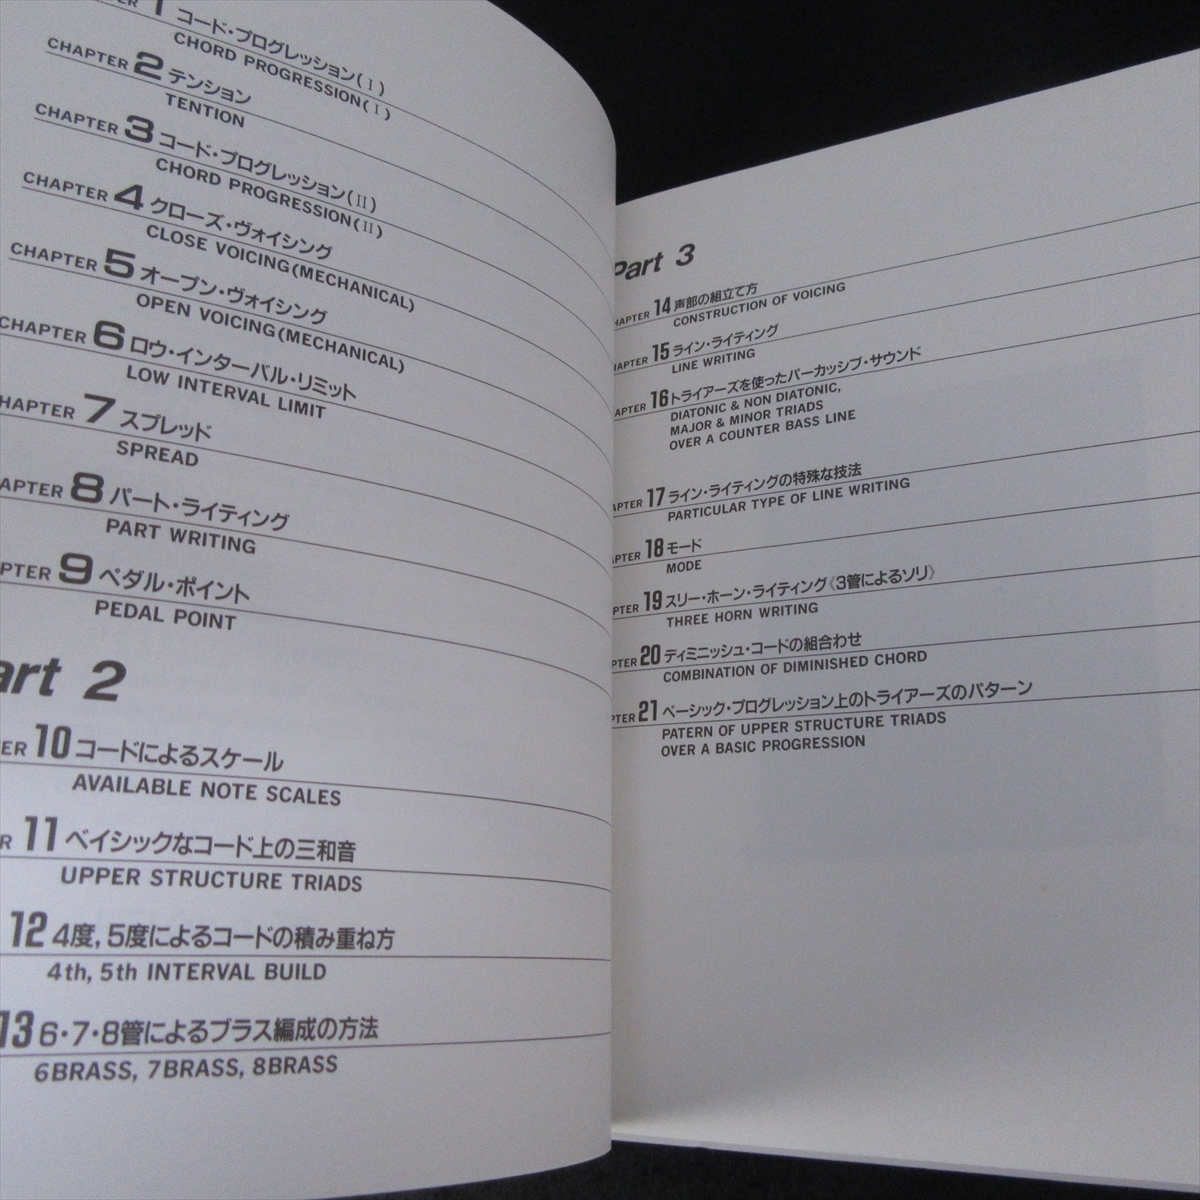 1 コード・プログレッション(Ⅰ)
CHORD PROGRESSION(Ⅰ)
CHAPTER 2 テンション
TENTION
CHAPTER 3 コード・プログレッション(Ⅱ)
CHORD PROGRESSION(Ⅱ)
CHAPTER 4 クローズ・ヴォイシング
CLOSE VOICING(MECHANICAL)
CHAPTER 5 オープン・ヴォイシング
OPEN VOICING(MECHANICAL)
CHAPTER 6 ロウ・インターバル・リミット
LOW INTERVAL LIMIT
HAPTER 7 スプレッド
SPREAD
APTER 8 パート・ライティング
PART WRITING
PTER 9 ペダル・ポイント
PEDAL POINT
art 2
ER 10 コードによるスケール
AVAILABLE NOTE SCALES
R 11 ベイシックなコード上の三和音
UPPER STRUCTURE TRIADS
12 4度, 5度によるコードの積み重ね方
4th, 5th INTERVAL BUILD
13 6・7・8管によるブラス編成の方法
6BRASS, 7BRASS, 8BRASS
Part 3
HAPTER 14 声部の組立て方
CONSTRUCTION OF VOICING
HAPTER 15 ライン・ライティング
LINE WRITING
APTER 16 トライアーズを使ったパーカッシブ・サウンド
DIATONIC & NON DIATONIC,
MAJOR & MINOR TRIADS
OVER A COUNTER BASS LINE
APTER 17 ライン・ライティングの特殊な技法
PARTICULAR TYPE OF LINE WRITING
PTER 18 モード
MODE
PTER 19 スリー・ホーン・ライティング《3管によるソリ》
THREE HORN WRITING
PTER 20 ディミニッシュ・コードの組合わせ
COMBINATION OF DIMINISHED CHORD
PTER 21 ベーシック・プログレッション上のトライアーズのパターン
PATERN OF UPPER STRUCTURE TRIADS
OVER A BASIC PROGRESSION